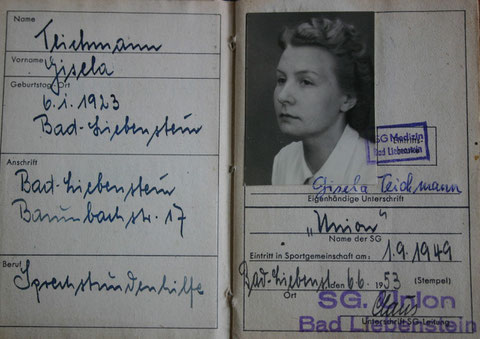 Name
Teichmann
Vorname
Gisela
Geburtstag Ort
6.1.1923
Bad-Liebenstein
Anschrift
Bad-Liebenstein
Baumbachstr. 17
Beruf
Sprechstundenhilfe
SG Medizin
Bad Liebenstein
Gisela Teichmann
Eigenhändige Unterschrift
"Union"
Name der SG
Eintritt in Sportgemeinschaft am: 1.9.1949
Bad-Liebenst. den 6.6. 1953 (Stempel)
Ort
SG. Union
Claus
Bad Liebenstein
Unterschrift SG-Leitung